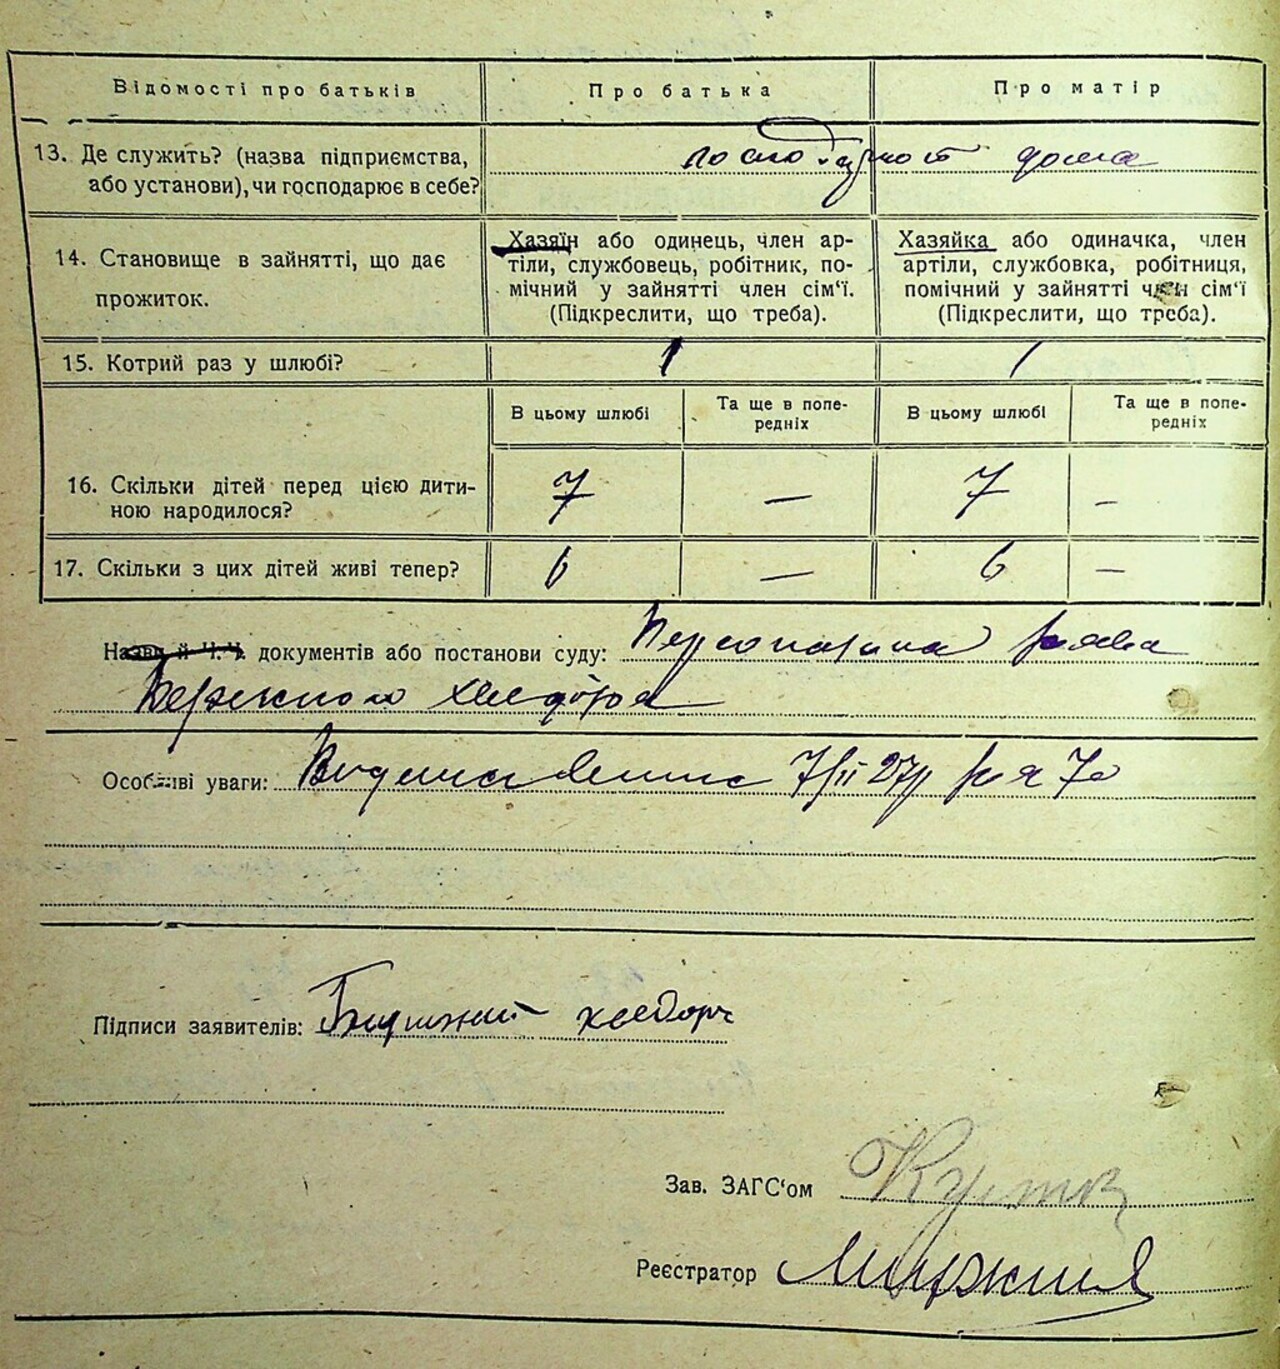 Відомості про батьків Про батька Про матір
13. Де служить? (назва підприємства, або установи), чи господарює в себе?
дома
14. Становище в зайнятті, що дає прожиток.
Хазяїн або одинець, член ар-
тіли, службовець, робітник, по-
мічний у зайнятті член сім'ї.
(Підкреслити, що треба).
Хазяйка або одиначка, член
артіли, службовка, робітниця,
помічний у зайнятті член сім'ї
(Підкреслити, що треба).
15. Котрий раз у шлюбі? 1 1
В цьому шлюбі Та ще в попе-
редніх В цьому шлюбі Та ще в попе-
редніх
16. Скільки дітей перед цією дити-
ною народилося? 7 — 7 —
17. Скільки з цих дітей живі тепер? 6 — 6 —
Назви й Ч.Ч. документів або постанови суду: Персональна
Особливі уваги: 7/II 27р 70
Підписи заявителів:
Зав. ЗАГС'ом
Реєстратор